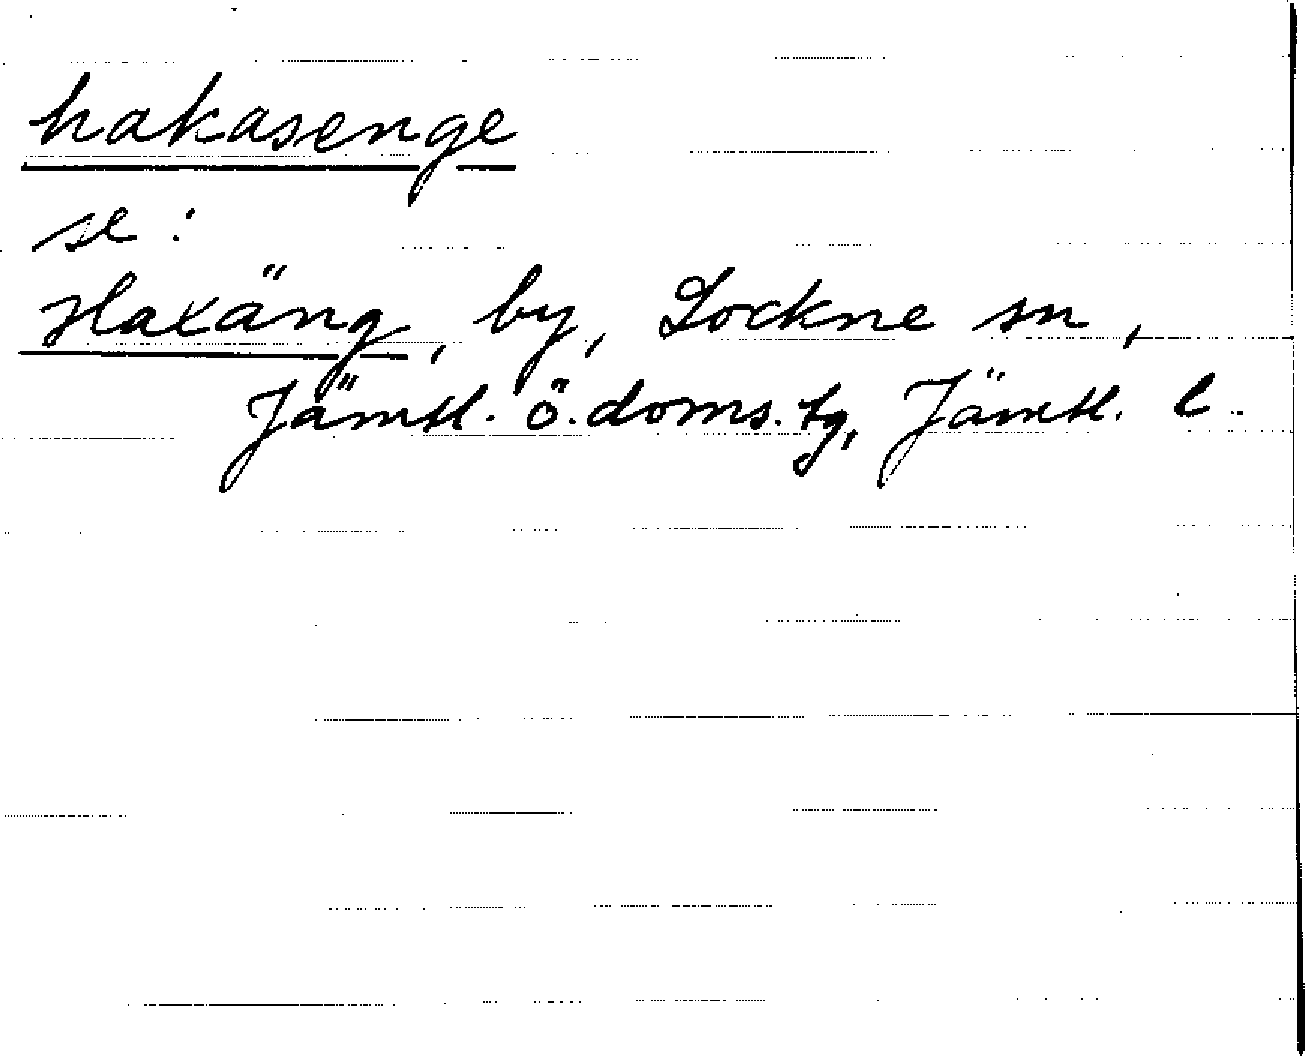 hakasenge
se:
Haxäng, by, Lockne sn,
Jämtl. ö. doms. tg, Jämtl. l.